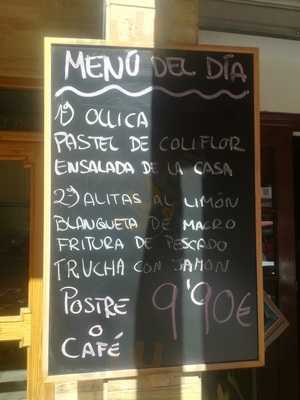 MENÚ DEL DÍA
1º) OLLICA
PASTEL DE COLIFLOR
ENSALADA DE LA CASA
2º) ALITAS AL LIMÓN
BLANQUETA DE MAGRO
FRITURA DE PESCADO
TRUCHA CON JAMON
POSTRE
O
CAFÉ
9'90€